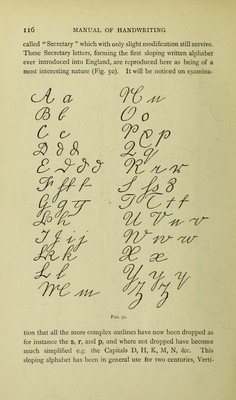 116 MANUAL OF HANDWRITING
called “Secretary” which with only slight modification still survive.
These Secretary letters, forming the first sloping written alphabet
ever introduced into England, are reproduced here as being of a
most interesting nature (Fig. 50). It will be noticed on examina-
A a
B b
C c
D d d d
E e d d d
F f f f
G g g g
h h
I j i j
k k
L l
M m
N n
O o
P p p
Q q
R r r r
S s s 8
T t t t
U V u v
W w w
X x
Y y y
z z
FIG. 50
tion that all the more complex outlines have now been dropped as
for instance the s, r, and p, and where not dropped have become
much simplified e.g. the Capitals D, H, K, M, N, &c. This
sloping alphabet has been in general use for two centuries, Verti-